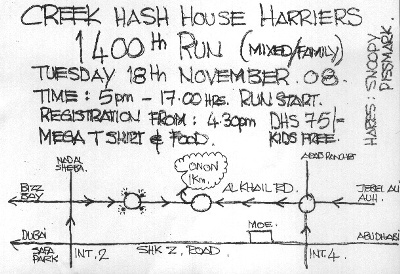 CREEK HASH HOUSE HARRIERS
1400th RUN (MIXED/FAMILY)
TUESDAY 18th NOVEMBER. 08.
TIME: 5pm - 17.00 HRS. RUN START.
REGISTRATION FROM: 4.30pm DHS 75/-
MEGA T SHIRT & FOOD. KIDS FREE.
HARES: SNOOPY
PISSMARK.
NADAL
SHEBA.
ON ON
1Km.
ARAB RANCHES
BIZZ
BAY
AL KHAIL RD.
JEBEL ALI
AUH.
MOE.
DUBAI
SAFA
PARK
INT. 2
SHK Z. ROAD
INT. 4.
ABU DHABI